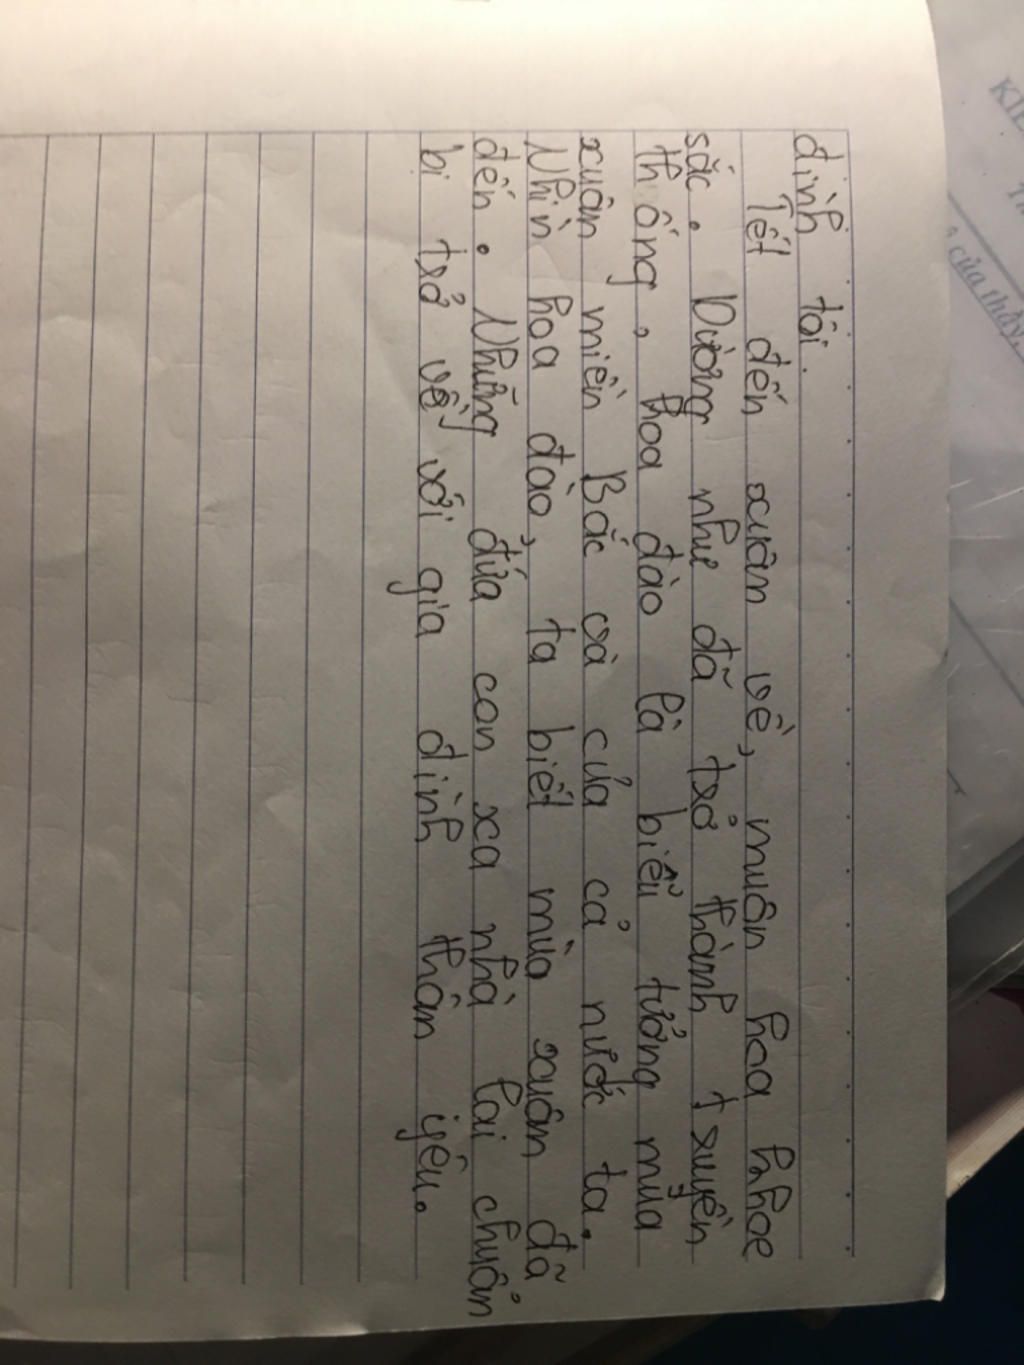 đình tôi.
Tết đến xuân về, muôn hoa khoe
sắc. Dường như đã trở thành truyền
thống, hoa đào là biểu tưởng mùa
xuân miền Bắc và của cả nước ta.
Nhìn hoa đào, ta biết mùa xuân đã
đến. Những đứa con xa nhà lại chuẩn
bị trở về với gia đình thân yêu.
của thầy,